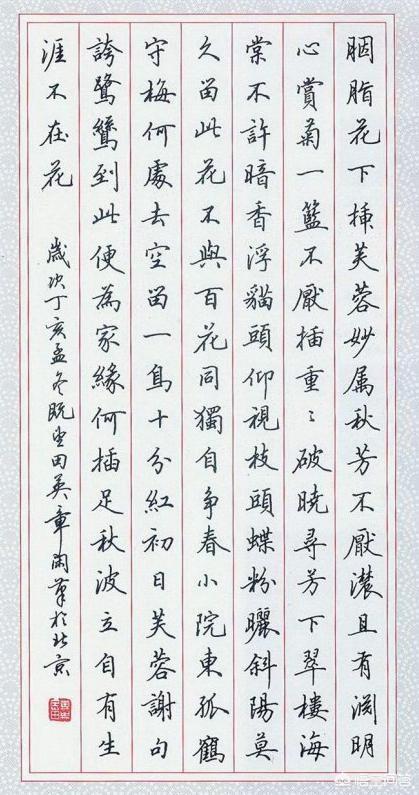 胭脂花下插芙蓉妙属秋芳不厭濃且有淵明
心賞菊一籃不厭插重〻破曉尋芳下翠樓海
棠不許暗香浮貓頭仰視枝頭蝶粉曬斜陽莫
久留此花不與百花同獨自争春小院東孤鶴
守梅何處去空留一鳥十分紅初日芙蓉謝句
誇鷺鷥到此便為家緣何插足秋波立自有生
涯不在花
歲次丁亥孟冬既望田英章闲筆於北京
悟空问答